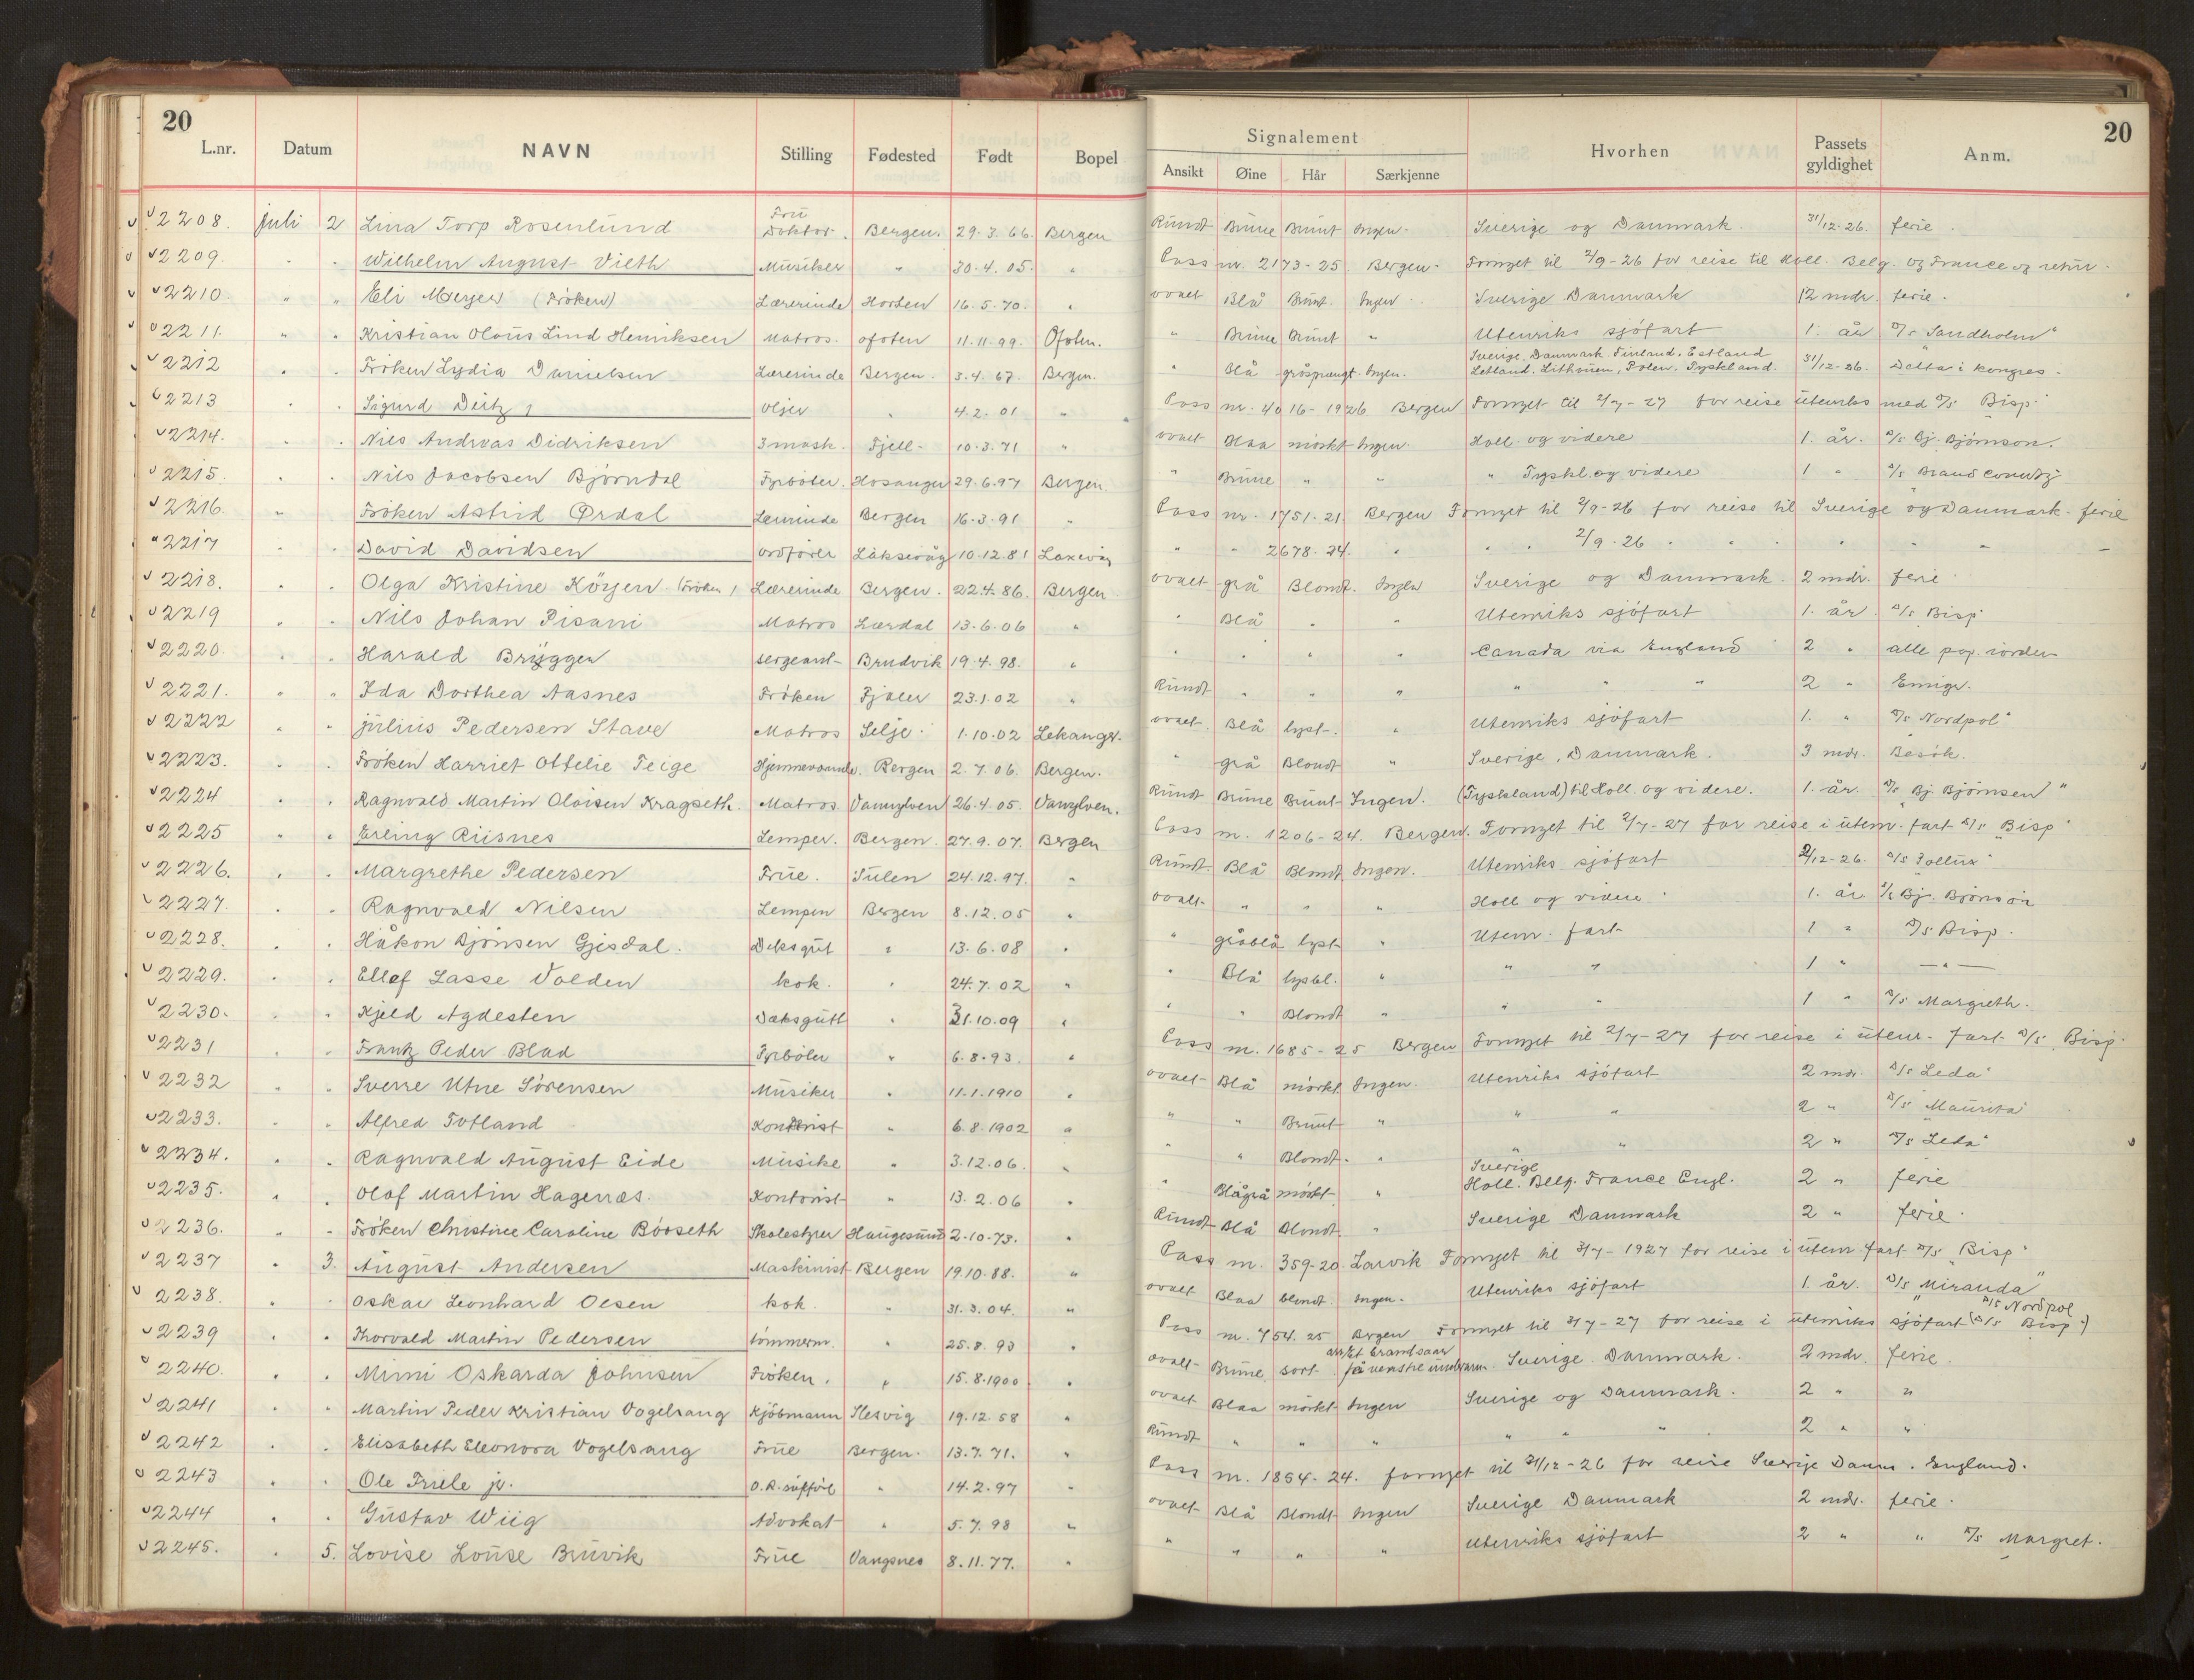 20
L.nr. Datum NAVN Stilling Fødested Født Bopel Signalement Ansikt Øine Hår Særkjenne Hvorhen Passets gyldighet Anm.
20
2208. juli 2 Lina Torp Rosenlund Frü Doktor. Bergen. 29.3.66. Bergen Rundt Brune Brunt Ingen. Sverige og Danmark. 31/12-26. ferie.
2209. " " Wilhelm August Vieth Musiker " 30.4.05. " Pass nr. 2173-25. Bergen. Fornyet til 2/9-26 for reise til Holl. Belg. og France og retur.
2210. " " Eli Meyer (Frøken) Lærerinde Horten 16.5.70. " ovalt Blå Brunt Ingen. Sverige Danmark 12 mdr. ferie.
2211. " " Kristian Olaus Lind Henriksen Matros. Ofoten 11.11.99. Ofoten. " Brune Brunt " Utenriks sjöfart 1. år D/s "Sandholm"
2212 " " Fröken Lydia Danielsen Lærerinde Bergen. 3.4.67. Bergen. " Blå gråsprengt. Ingen. Sverige. Danmark. Finland. Estland Letland. Lithauen, Polen. Tyskland. 31/12-26. Delta i kongres.
2213 " " Sigurd Deitz, Oljer " 4.2.01 " Pass nr. 4016-1926 Bergen Fornyet til 2/7-27 for reise utenriks med D/s "Bisp"
2214. " " Nils Andreas Didriksen 3 mask. Fjell- 10.3.71 " ovalt Blaa mörkt Ingen. Holl. og videre 1. år. D/s Bj. Björnson.
2215. " " Nils Jacobsen Björndal Fyrböter. Hosanger 29.6.97 Bergen. " Brune " " " Tyskl. og videre 1 " D/s Brand
2216. " " Fröken Astrid Ørdal Lærerinde Bergen 16.3.91 " Pass nr. 1751-21. Bergen Fornyet til 2/9-26 for reise til Sverige og Danmark. ferie
2217 " " David Davidsen ordförer Laksevåg 10.12.81 Laxevåg " " 2678-24. " " " 2/9.26 " " " " "
2218. " " Olga Kristine Köyen. (Fröken) Lærerinde Bergen. 22.4.86. Bergen ovalt grå Blondt. Ingen Sverige og Danmark. 2 mdr. ferie
2219 " " Nils Johan Pisani Matros Lærdal 13.6.06 " " Blå " " Utenriks sjöfart 1. år. D/s Bisp
2220 " " Harald Brygger sergeant- Brudvik 19.4.98. " " " " " Canada via England 2 " alle pap. iorden
2221. " " Ida Dorthea Aasnes Fröken Fjaler 23.1.02 " Rundt " " " " " " 2 " Emigr.
2222 " " Julius Pedersen Stave Matros Selje 1.10.02 Lekanger. ovalt. Blå lyst. " Utenriks sjöfart 1. " D/s "Nordpol"
2223. " " Fröken Harriet Ottelie Teige Hjemmeværende. Bergen 2.7.06. Bergen. " grå Blondt " Sverige, Danmark. 3 mdr. Besök.
2224 " " Ragnvald Martin Olaisen Kragseth. Matros Vannylven 26.4.05. Vanylven. Rundt Brune Brunt Ingen. (Tyskland) til Holl. og videre. 1. år D/s "Bj. Björnsen"
2225 " " Erling Riisnes Lemper. Bergen. 27.9.07. Bergen Pass nr. 1206-24. Bergen. Fornyet til 2/7-27 for reise i utenr. fart D/s "Bisp"
2226. " " Margrethe Pedersen Frue. Sulen 24.12.97. " Rundt. Blå Blondt Ingen. Utenriks sjöfart 2/12-26. D/s "Pollux"
2227. " " Ragnvald Nilsen Lemper Bergen 8.12.05 " ovalt. " " " Holl og videre 1. år D/s Bj. Björnson
2228. " " Håkon Bjönsen Gjesdal. Deksgut " 13.6.08 " " gråblå lyst " Utenr. fart 1 " D/s Bisp.
2229. " " Ellef Lasse Volden kok. " 24.7.02 " " Blå lysbl. " " " 1 " — " —
2230. " " Kjeld Agdesten Daksgutt " 31.10.09 " " " Blondt " " " 1 " D/s Margreth.
2231 " " Frantz Peder Blad Fyrböter " 6.8.93. " Pass nr. 1685-25 Bergen Fornyet til 2/7-27 for reise i utenr. fart D/s Bisp.
2232 " " Sverre Utne Sörensen Musiker " 11.1.1910 " ovalt Blå mörkt Ingen. Utenriks sjöfart 2 mdr. D/s "Leda"
2233. " " Alfred Totland Kontorist " 6.8.1902 " " " Brunt " " " 2 " D/s "Maurita"
2234. " " Ragnvald August Eide Musike " 3.12.06. " " " Blondt. " " " 2 " D/s "Leda"
2235. " " Olaf Martin Hagenæs. Kontorist " 13.2.06 " " Blågrå mörkt " Sverige Holl. Belg. France Engl. 2 " ferie
2236. " " Fröken Christine Caroline Börseth Skolestyrer Haugesund 2.10.73. " Rundt Blå Blondt " Sverige Danmark 2 " ferie.
2237 " 3. August Andersen Maskinist Bergen 19.10.88. " Pass nr. 359-20. Larvik Fornyet til 3/7-1927 for reise i utenr. fart D/s "Bisp"
2238. " " Oskar Leonhard Olsen kok. " 31.3.04. " ovalt Blaa blondt. Ingen. Utenriks sjöfart 1. år. D/s "Miranda"
2239 " " Thorvald Martin Pedersen tömmerm. " 25.8.93 " Pass nr. 754.25 Bergen Fornyet til 3/7-27 for reise i utenriks sjöfart (D/s Bisp.) D/s Nordpol
2240. " " Mimi Oskarda Johnsen Fröken. " 15.8.1900 " ovalt Brune sort. arr Et brandsaar på venstre underarm. Sverige. Danmark. 2 mdr. ferie.
2241 " " Martin Peder Kristian Vogelsang Kjöbmann Slesvig 19.12.68 " ovalt Blaa mörkt Ingen Sverige og Danmark. 2 " "
2242 " " Elisabeth Eleonora Vogelsang Frue Bergen. 13.7.71. " Rundt " " " " " " 2 " "
2243 " " Ole Friele jr. O.R. sakför " 14.2.97 " Pass nr. 1854-24. fornyet til 31/12-26 for reise Sverige Danm. England.
2244 " " Gustav Wiig Advokat " 5.7.98 " ovalt Blå Blondt Ingen Sverige Danmark 2 mdr. ferie.
2245. " 5. Lovise Louse Bruvik Frue Vangsnes 8.11.77. " " " " " Utenriks sjöfart 2 " " D/s Margret.